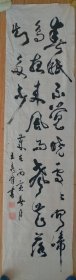 春眠不覺曉處處聞啼
鳥夜来風雨聲花落
知多少